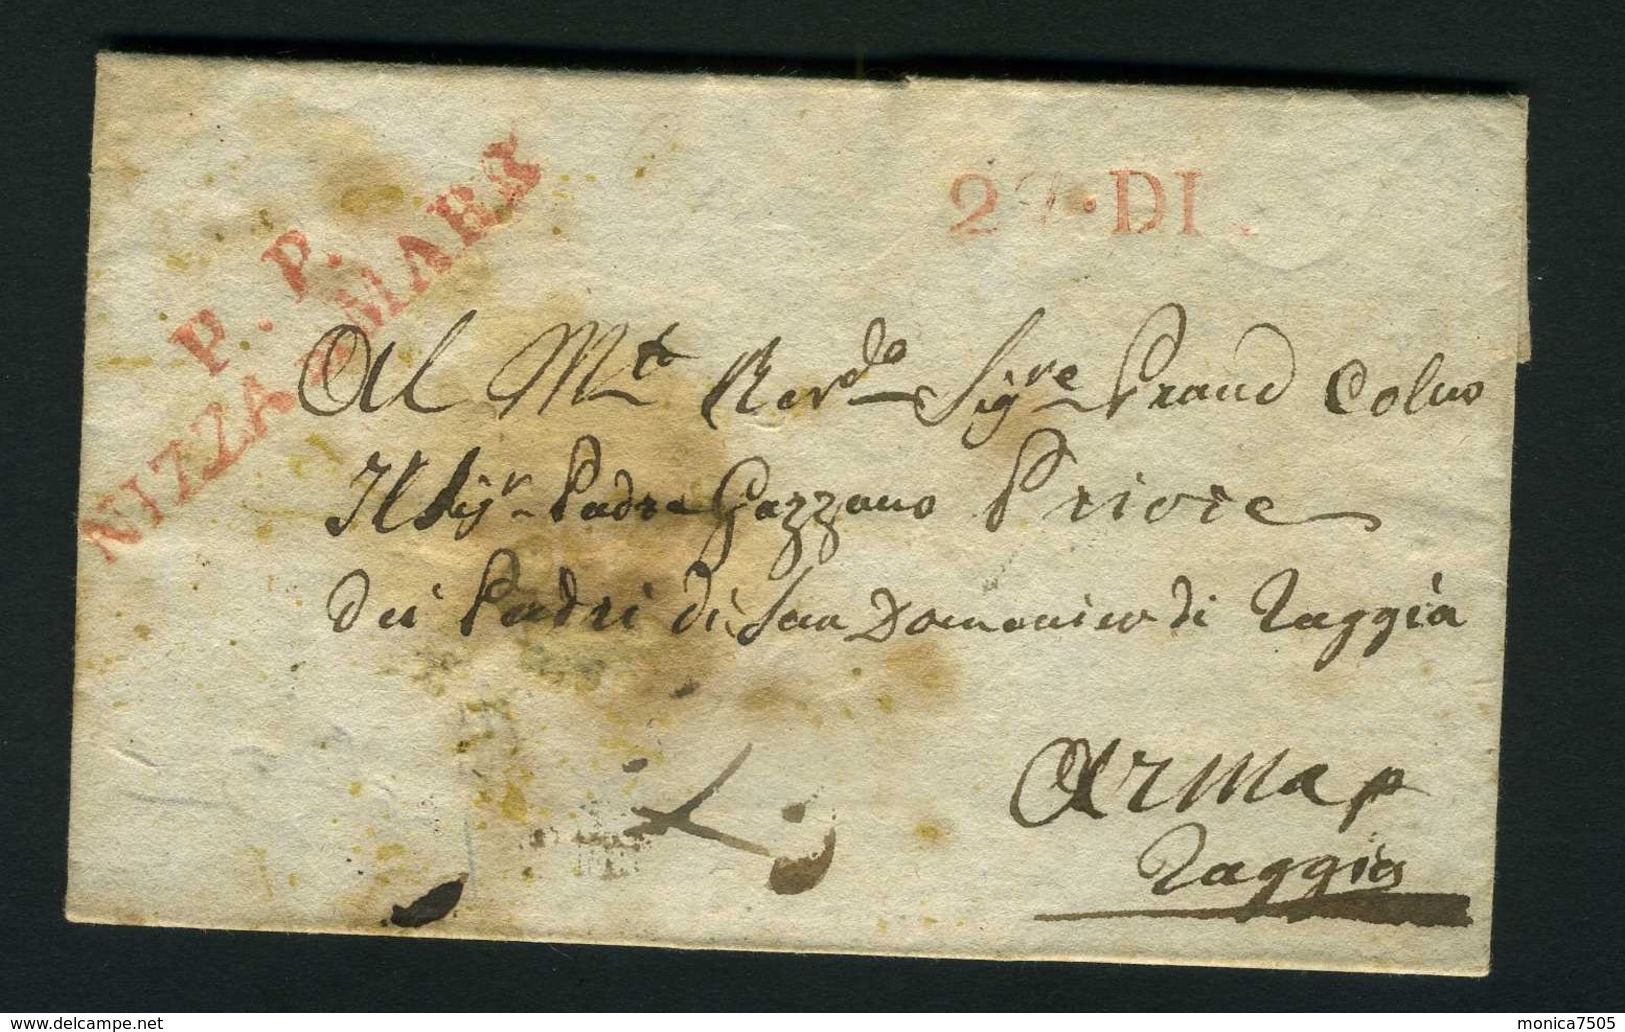 P. P.
NIZZA MARA
27. DI.
Al Mto Revdo Sigre Prand Colmo
Il Sigr Padre Gazzano Priore
dei Padri di San Domenico di Taggia
Arma p
Taggia
monica7505